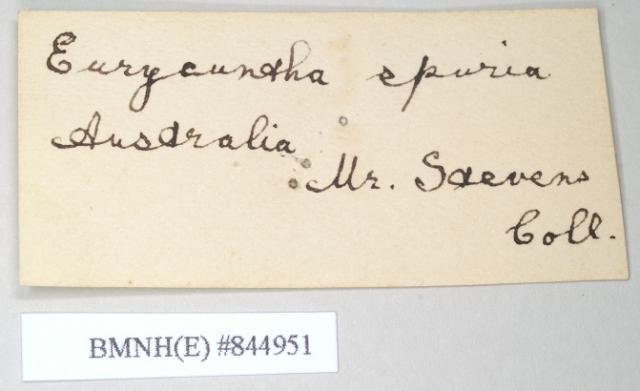 Eurycantha spuria
Australia
Mr. Stevens
Coll.
BMNH(E) #844951